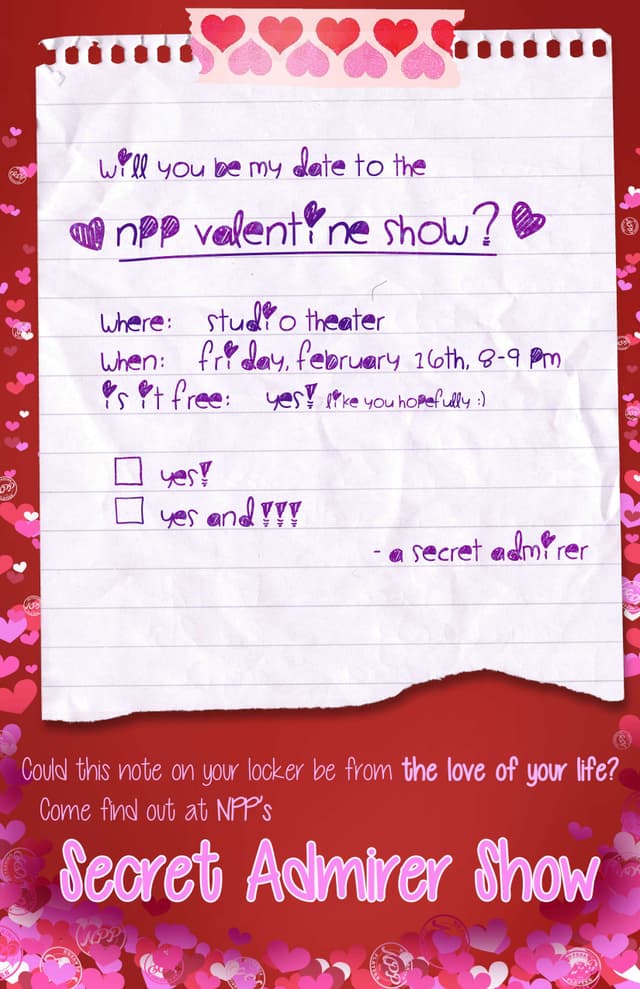 will you be my date to the
npp valentine show?
where: studio theater
when: friday, february 16th, 8-9 pm
is it free: yes! like you hopefully :)
yes!
yes and!!!
- a secret admirer
Could this note on your locker be from the love of your life?
Come find out at NPP's
Secret Admirer Show
NPP